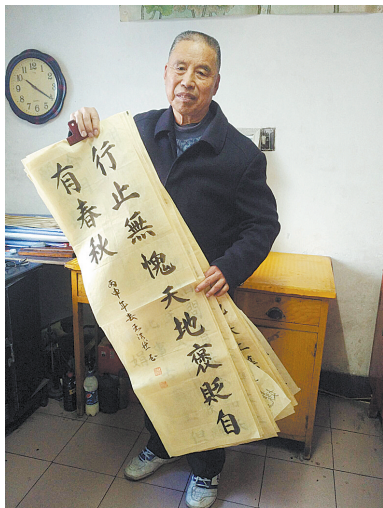 行止無愧天地褒貶自
有春秋
丙申年